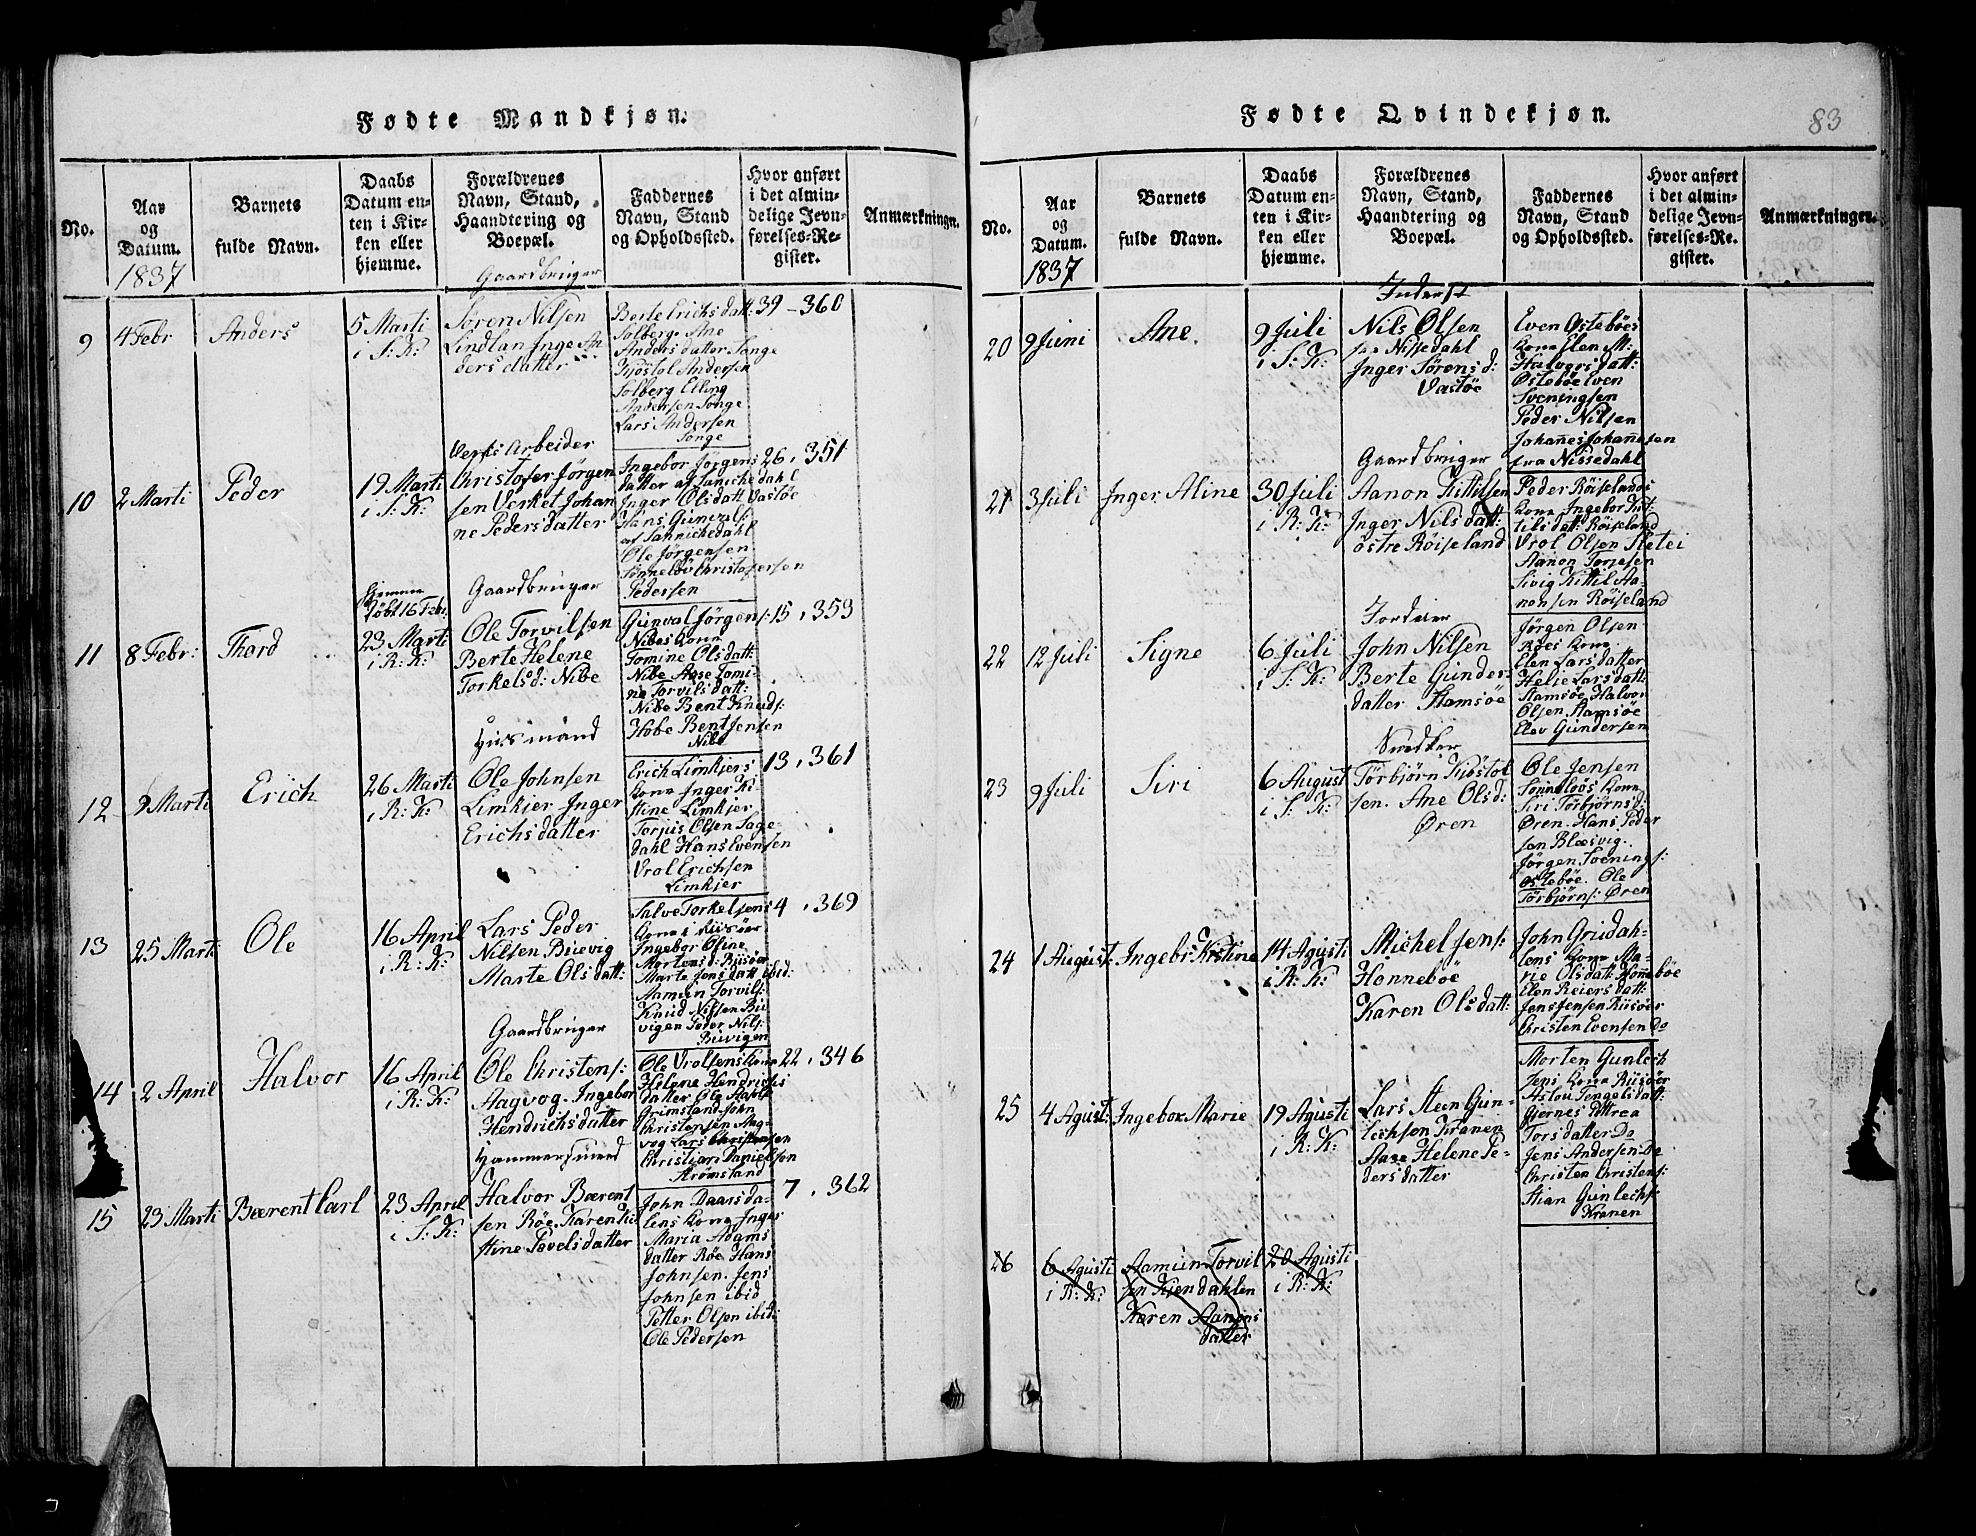 Fødte Mandkjøn.
No.
Aar
og
Datum.
1837
Barnets
fulde Navn.
Daabs
Datum en-
ten i Kir-
ken eller
hjemme.
Forældrenes
Navn, Stand,
Haandtering og
Boepæl.
Faddernes
Navn, Stand
og Opholdssted.
Hvor anført
i det almin-
delige Jevn-
førelses-Re-
gister.
Anmærkninger.
9
4 Febr
Anders
5 Marti
i S: K:
Gaardbruger
Søren Nilsen
Lindlan Inge An
ders datter
Berte Erichs datt:
Solberg. Ane
Anders datter Songe
Kjøstol Andersen
Solberg Elling
Andersen Songe
Lars Andersen
Songe
39 - 360
10
2 Marti
Peder
19 Marti
i S: K:
Verks Arbeider
Christofer Jørgen
sen Verket Johan
ne Peders datter
Ingebor Jørgens
datter af Sanichedahl
Inger Ols datt Vastøe
Hans Gunvals:
af Sannichedahl
Ole Jørgensen
Sønneløv Christofersen
Pedersen
26, 351
11
8 Febr:
Thard
hjemme
døbt 16 Febr.
23 Marti
i R: K:
Gaardbruger
Ole Torvilsen
Berte Helene
Torkelsd: Nibe
Gunval Jørgens:
Nibes Kone
Tomine Ols datt:
Nibe Aase Tomi-
ne Torvils datt:
Nibe Bent Knuds:
Hobe Bent Jensen
Nibe
15, 353
12
9 Marti
Erich
26 Marti
i R: K:
Huusmand
Ole Johnsen
Limkjer Inger
Erichs datter
Erich Limkjers
Kone Inger Ki-
stine Limkjer
Torjus Olsen Sage-
dahl Hans Evensen
Vrol Erichsen
Limkjer
13, 361
13
25 Marti
Ole
16 April
i R: K:
Lars Peder
Nilsen Buevig
Marte Ols datt:
Salve Torkelsens
Kone i Riisøer
Ingebor Oline
Mortensd: Riisøer
Marte Jens datt ibid:
Aamun Torvils:
Knud Nilsen Bu-
vigen Peder Nils:
Buvigen
4, 369
14
2 April
Halvor
16 April
i R: K:
Gaardbruger
Ole Christens:
Aagvog. Ingebor
Hendrichs datter
Ole Vrolsens Kone
Helene Hendrichs
datter Ole Aanon
Grimsland John
Christensen Aag-
vog Lars Christensen
Christian Danielsen
Krømsland
22, 346
15
23 Marti
Bærent Carl
23 April
i S: K:
Hammersmed
Halvor Bærent
sen Røe. Karen Ki
stine Povels datter
John Daarsda-
lens Kone Inger
Maria Adams
datter Røe Hans
Johnsen. Jens
Johnsen ibid
Petter Olsen ibid:
Ole Pedersen
7, 362
Fødte Qvindekjøn.
83
No.
Aar
og
Datum.
1837
Barnets
fulde Navn.
Daabs
Datum en-
ten i Kir-
ken eller
hjemme.
Forældrenes
Navn, Stand,
Haandtering og
Boepæl.
Faddernes
Navn, Stand
og Opholdssted.
Hvor anført
i det almin-
delige Jevn-
førelses-Re-
gister.
Anmærkninger.
20
9 Juni
Ane.
9 Juli
i S: K:
Inderst
Nils Olsen
fra Nissedahl
Inger Sørens d:
Vastøe
Even Østebøes
Kone Elen M:
Halvors datt:
Østebøe Even
Sveningsen
Peder Nilsen
Johanes Johannesen
fra Nissedahl
21
3 Juli
Inger Aline
30 Juli
i R: K:
Gaardbruger
Aanon Kittilsen
Inger Nils datt:
østre Røiseland
Peder Røiselands
Kone Ingebor Kit-
tils datt: Røiseland
Vrol Olsen Sletei
Aanon Torjesen
Sivig Kittil Aa-
nonsen Røiseland
22
12 Juli
Signe
6 Juli
i S: K:
Jordeier
John Nilsen
Berte Gunder-
datter Stamsøe
Jørgen Olsen
Røes Kone
Elen Lars datter
Helie Lars datt:
Stamsøe Halvor
Olsen Stamsøe
Elev Gundersen
23
9 Juli
Siri
6 August
i S: K:
Snedker
Torbjørn Kjøstol
sen. Ane Ols d:
Øren
Ole Jensen
Sønneløvs Kone
Siri Torbjørns d:
Øren. Hans Peder
sen Blæsvig.
Jørgen Svenings:
Østebøe. Ole
Torbjørns: Øren
24
1 August:
Ingebr Kirstine
14 Agusti
i R: K:
Michel Jens:
Honnebøe
Karen Ols datt:
John Grudah-
lens Kone Ma-
rie Olsdatt: Honnebøe
Elen Reiers datt:
Jens Jensen Riisøer
Christen Evensen Do
25
4 Agust:
Ingebor Marie
19 Agusti
i R: K:
Lars Steen Gun-
lechsen Kranen
Aase Helene Pe-
ders datter
Morten Gunlech
sens Kone Riisøer
Aslou Tengels datt:
Gjernes Petrea
Tors datter Do
Jens Andersen Do
Christen Christens:
Stian Gunlechs:
Kranen
26
6 Agusti
i R: K:
Aamun Torvil
sen Kjendahlen
Karen Aanons
datter
20 Agusti
i R: K: